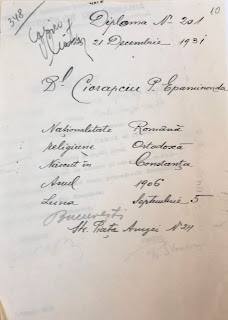 348
10
Diploma No 201
21 Decembrie 1931
Dl Ciorapciu P. Epaminonda
Naționalitate Română
religiune Ortodoxă
Născut în Constanța
Anul 1906
Luna Septembrie 5
București
Str. Piața Amzei No 24